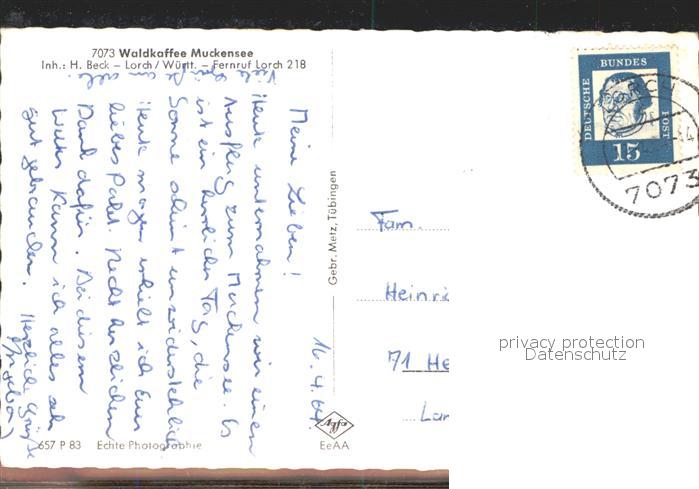 7073 Waldkaffee Muckensee
Inh.: H. Beck – Lorch / Württ. – Fernruf Lorch 218
16.4.64.
Meine Lieben!
Heute unternahmen wir einen
Ausflug zum Muckensee. Es
ist ein herrlicher Tag, die
Sonne scheint unwiderstehlich
Heute morgen erhielt ich Euer
liebes Paket. Recht herzlichen
Dank dafür. Bei diesem
Wetter kann ich alles sehr
gut gebrauchen. Herzliche Grüße
Viele Grüße an alle.
Gebr. Metz, Tübingen
DEUTSCHE BUNDESPOST
15
LORCH
7073
Fam.
Heinri
71 He
Lan
privacy protection
Datenschutz
657 P 83 Echte Photographie
Agfa
EeAA